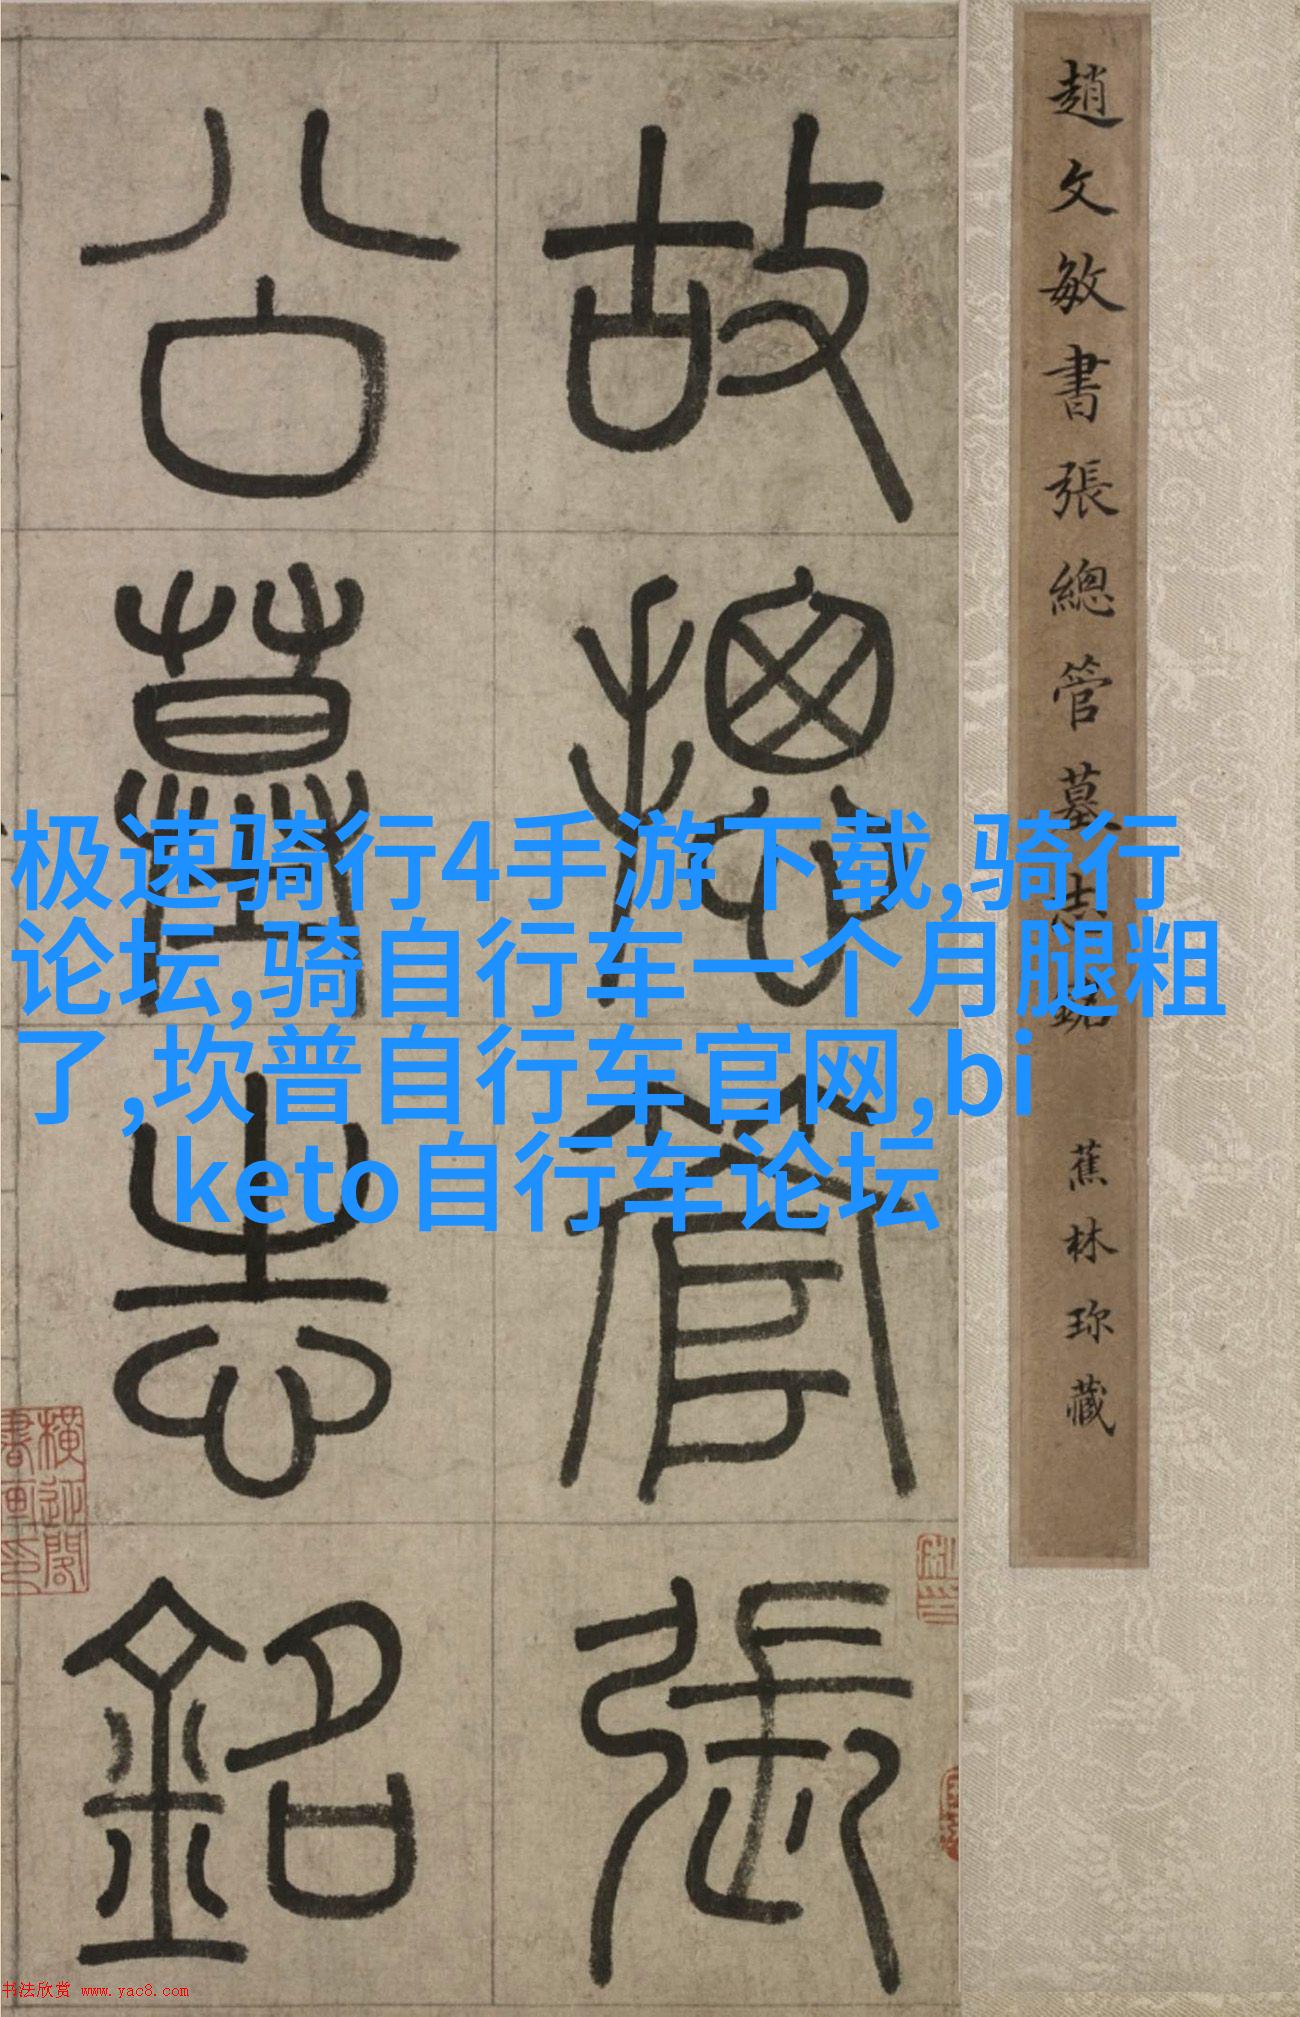 趙文敏書張總管墓志銘 蕉林珍藏
故總管張
公墓志銘
极速骑行4手游下载,骑行
论坛,骑自行车一个月腿粗
了,坎普自行车官网,bi
keto自行车论坛
书法欣赏 www.yac8.com